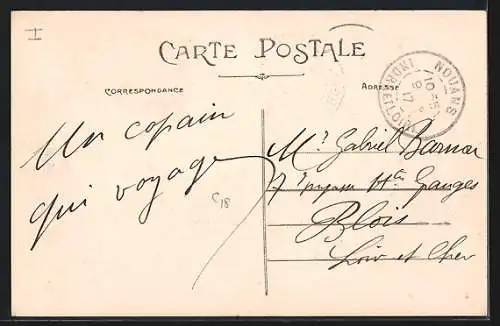 I
CARTE POSTALE
CORRESPONDANCE
ADRESSE
NOUANS
INDRE-ET-LOIRE
Un copain
qui voyage
C18
Mr Gabriel Barnar
7 impasse Htes Granges
Blois
Loir et Cher